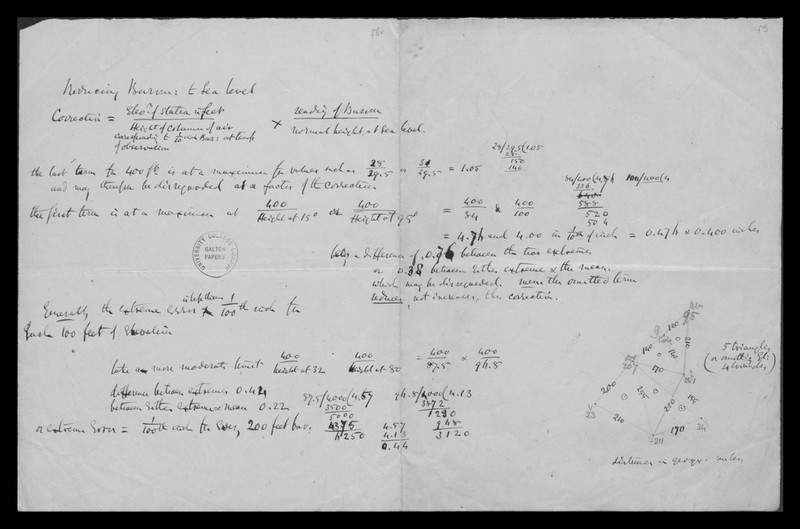 Reducing Barom: to Sea level
Correction = Elevn of station in feet / Height of Column of air corresponding to 1/10 inch Bar: at temp of observation × reading of Barom / normal height at Sea level.
28/29.5(1.05
28
150
140
the last term for 400 ft is at a maximum for values such as 28/29.5 or 31/29.5 = 1.05
and may therefore be disregarded as a factor of the correction
84/400(4.76
336
640
588
520
504
100/400(4
the first term is at a maximum at 400/Height at 15° or 400/Height at 95° = 400/84 & 400/100
= 4.76 and 4.00 in 10ths of inch = 0.476 & 0.400 inches
UNIVERSITY COLLEGE LONDON
GALTON PAPERS
being a difference of 0.76 between the two extremes
or 0.38 between either extreme & the mean.
which may be disregarded. the omitted term
reduces, not increases, the correction.
Generally the extreme error is less than 1/100th inch for
Each 100 feet of Elevation
take a more moderate limit 400/height at 32 400/height at 80 = 400/87.5 × 400/96.8
difference between extremes 0.44
between either extreme & mean 0.22
87.5/4000(4.57
3500
5000
4375
6250
96.8/4000(4.13
3872
1280
968
3120
4.57
4.13
0.44
or extreme error = 1/100th inch for every 200 feet
5 triangles
(or omitting
4 triangles)
200
210
170
210
170
140
100
210
205
95
23
207
201
211
34
distances in geogr. miles